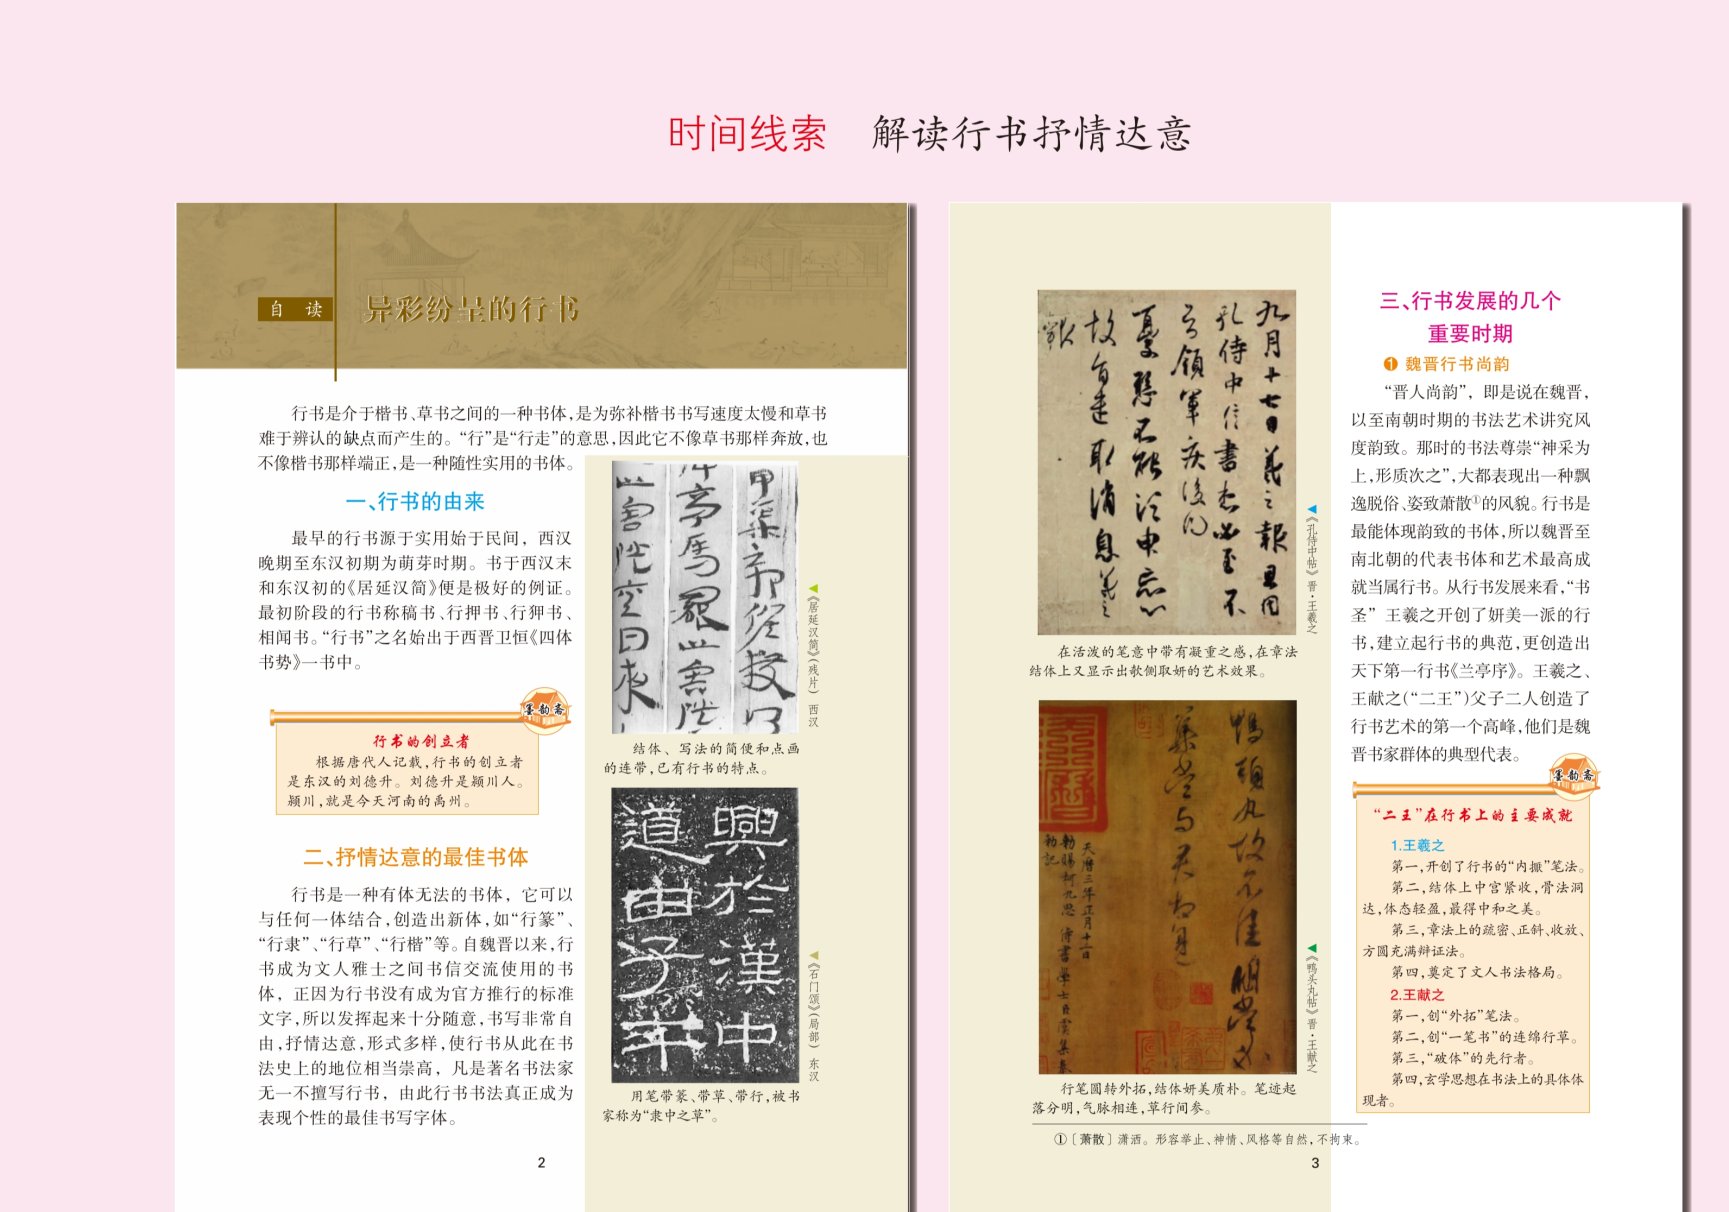 时间线索 解读行书抒情达意
自 读
异彩纷呈的行书
行书是介于楷书、草书之间的一种书体,是为弥补楷书书写速度太慢和草书
难于辨认的缺点而产生的。“行”是“行走”的意思,因此它不像草书那样奔放,也
不像楷书那样端正,是一种随性实用的书体。
一、行书的由来
最早的行书源于实用始于民间，西汉
晚期至东汉初期为萌芽时期。书于西汉末
和东汉初的《居延汉简》便是极好的例证。
最初阶段的行书称稿书、行押书、行狎书、
相闻书。“行书”之名始出于西晋卫恒《四体
书势》一书中。
墨韵斋
行书的创立者
根据唐代人记载,行书的创立者
是东汉的刘德升。刘德升是颍川人。
颍川,就是今天河南的禹州。
二、抒情达意的最佳书体
行书是一种有体无法的书体，它可以
与任何一体结合,创造出新体,如“行篆”、
“行隶”、“行草”、“行楷”等。自魏晋以来,行
书成为文人雅士之间书信交流使用的书
体，正因为行书没有成为官方推行的标准
文字,所以发挥起来十分随意,书写非常自
由,抒情达意,形式多样,使行书从此在书
法史上的地位相当崇高，凡是著名书法家
无一不擅写行书，由此行书书法真正成为
表现个性的最佳书写字体。
◀《居延汉简》(残片) 西汉
结体、写法的简便和点画
的连带,已有行书的特点。
興於漢中
道由子午
◀《石门颂》(局部) 东汉
用笔带篆、带草、带行,被书
家称为“隶中之草”。
2
九月十七日羲之報且因
孔侍中信書想必至不
知領軍疾後問
憂懸不能須臾忘心
故旨遣取消息羲之
報
◀《孔侍中帖》 晋·王羲之
在活泼的笔意中带有凝重之感,在章法
结体上又显示出欹侧取妍的艺术效果。
鴨頭丸故不佳明當必
集當與君相見
天曆三年正月十二日
勅賜柯九思 侍書學士臣虞集奉
勅記
◀《鸭头丸帖》 晋·王献之
行笔圆转外拓,结体妍美质朴。笔迹起
落分明,气脉相连,草行间参。
①〔萧散〕潇洒。形容举止、神情、风格等自然,不拘束。
3
三、行书发展的几个
重要时期
❶ 魏晋行书尚韵
“晋人尚韵”，即是说在魏晋,
以至南朝时期的书法艺术讲究风
度韵致。那时的书法尊崇“神采为
上,形质次之”,大都表现出一种飘
逸脱俗、姿致萧散①的风貌。行书是
最能体现韵致的书体,所以魏晋至
南北朝的代表书体和艺术最高成
就当属行书。从行书发展来看,“书
圣”王羲之开创了妍美一派的行
书,建立起行书的典范,更创造出
天下第一行书《兰亭序》。王羲之、
王献之(“二王”)父子二人创造了
行书艺术的第一个高峰,他们是魏
晋书家群体的典型代表。
墨韵斋
“二王”在行书上的主要成就
1.王羲之
第一,开创了行书的“内擫”笔法。
第二,结体上中宫紧收,骨法洞
达,体态轻盈,最得中和之美。
第三,章法上的疏密、正斜、收放、
方圆充满辩证法。
第四,奠定了文人书法格局。
2.王献之
第一,创“外拓”笔法。
第二,创“一笔书”的连绵行草。
第三,“破体”的先行者。
第四,玄学思想在书法上的具体体
现者。